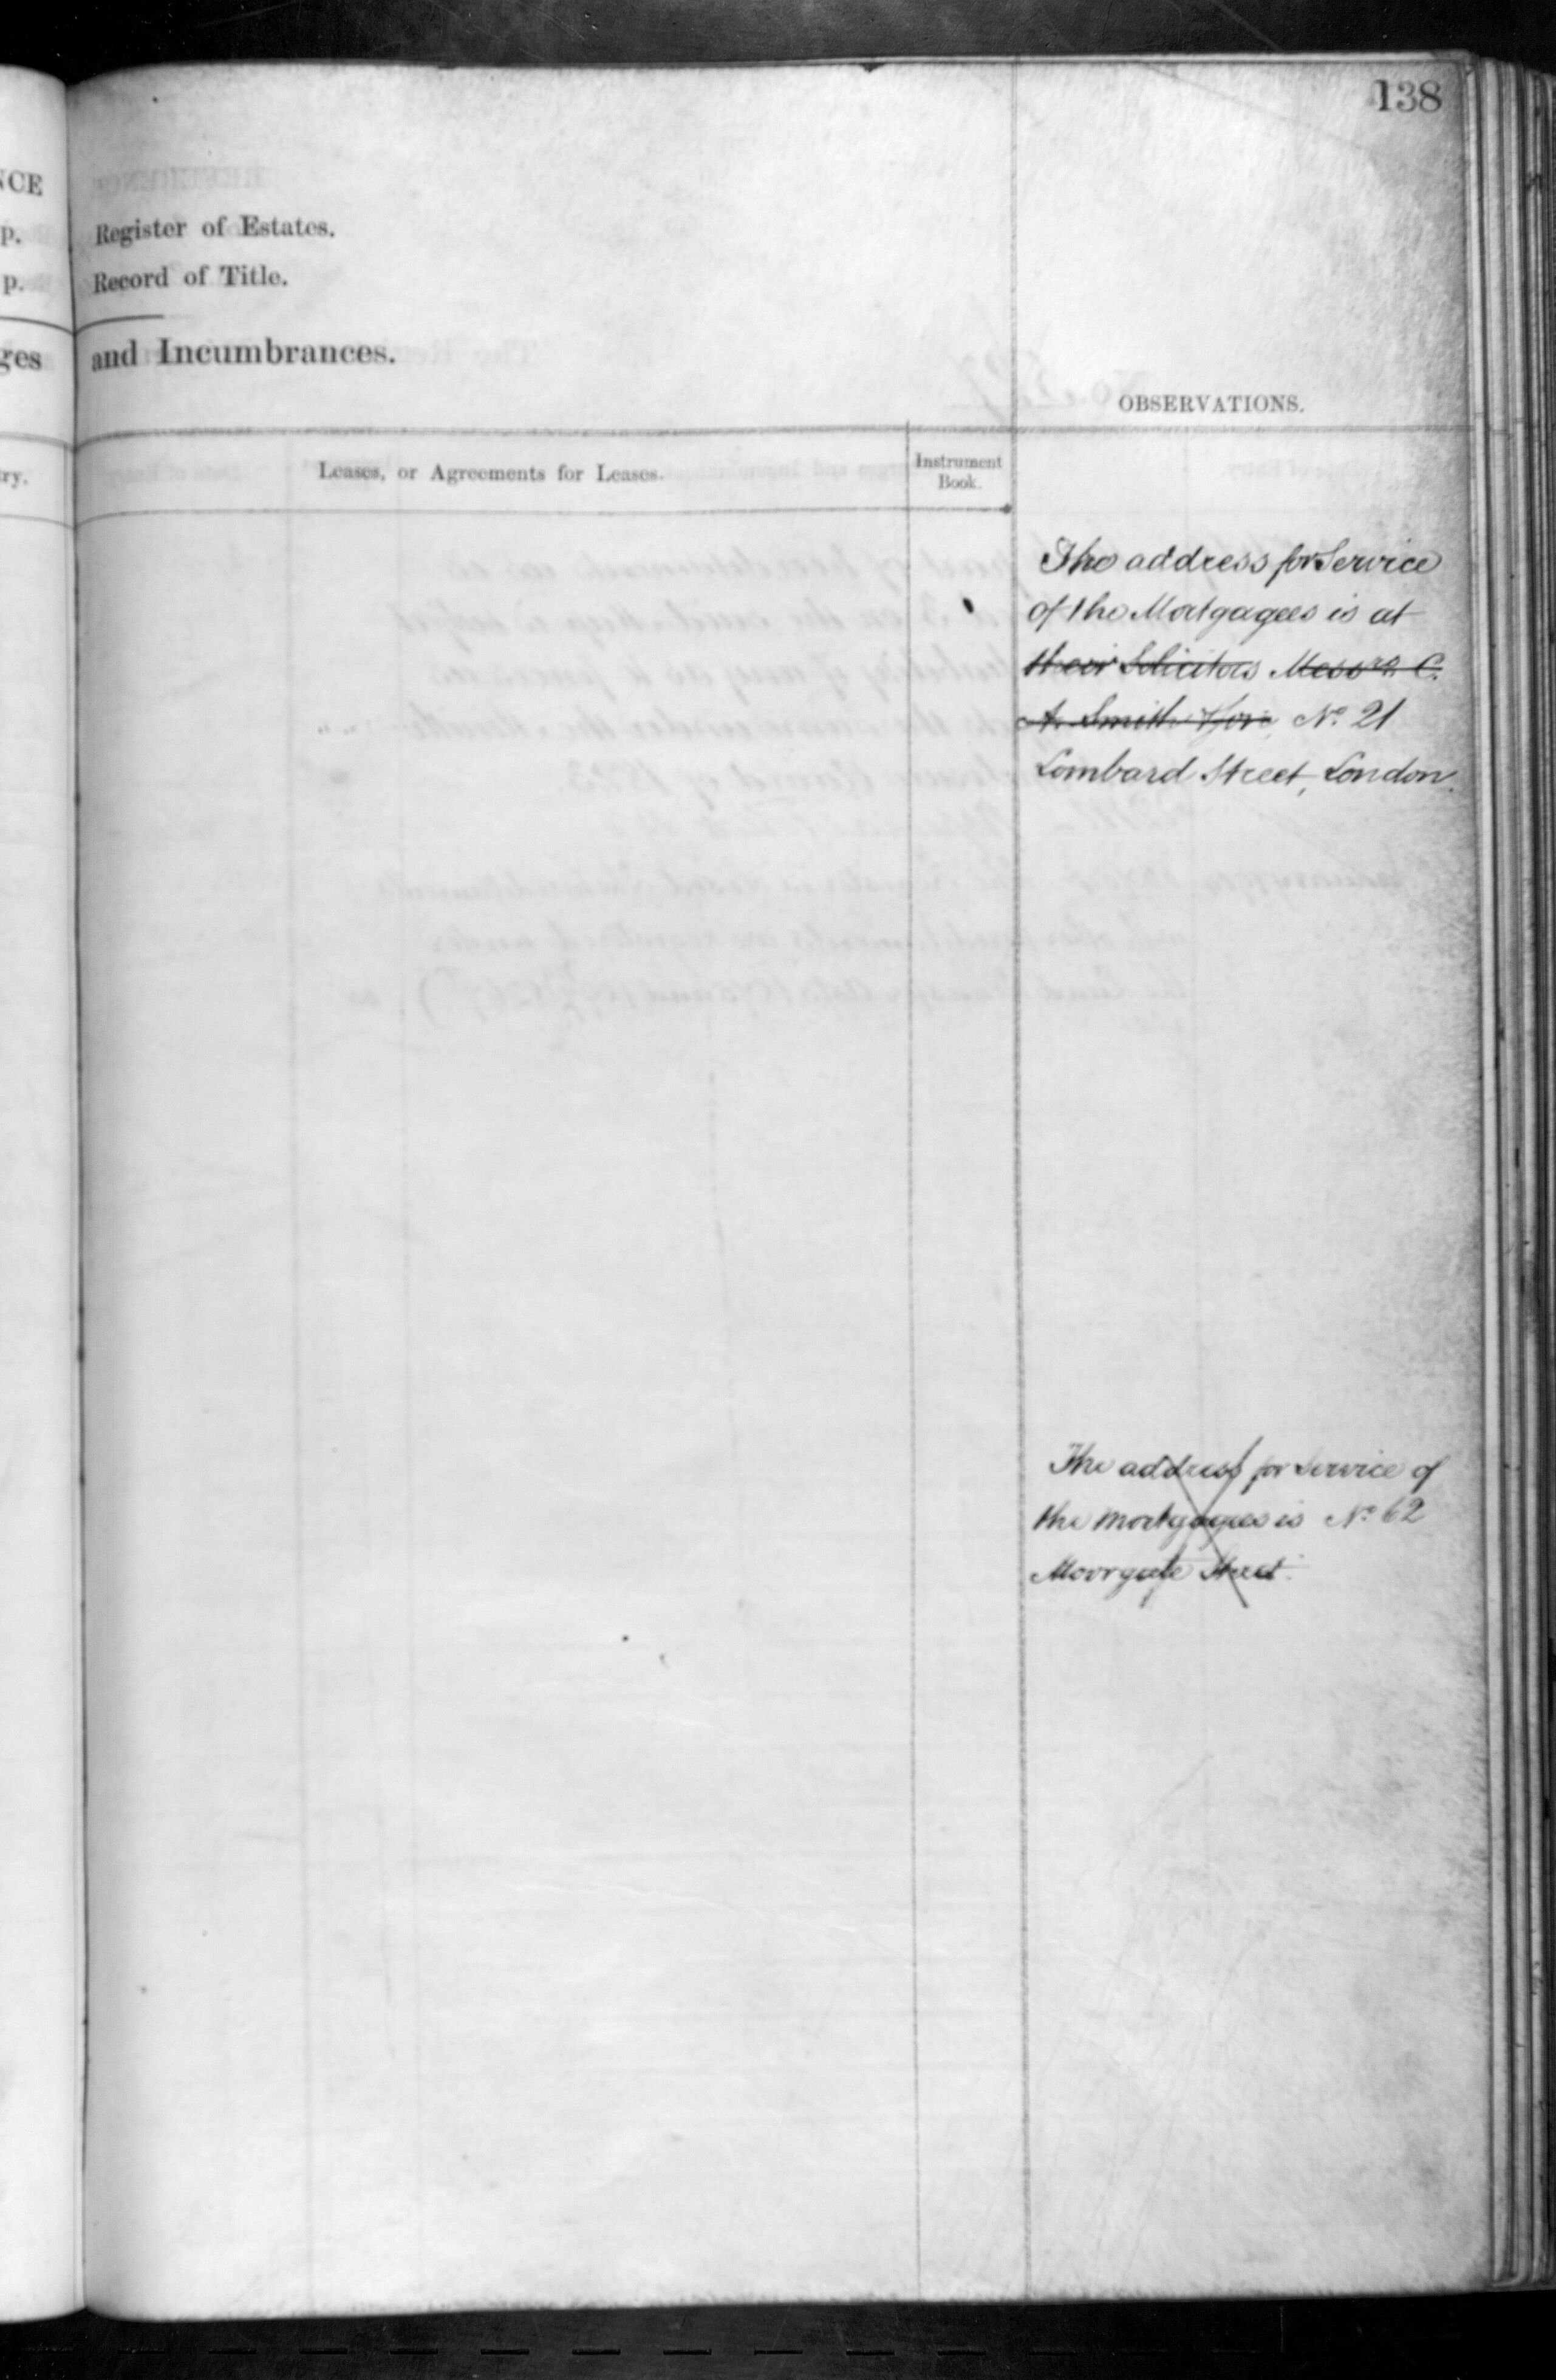 138
NCE
p.
p.
ges
ry.
Register of Estates.
Record of Title.
and Incumbrances.
OBSERVATIONS.
Leases, or Agreements for Leases.
Instrument
Book.
The address for Service
of the Mortgagees is at
their Solicitors Messrs. C.
A. Smith No. 21
Lombard Street, London.
The address for Service of
the mortgagees is No. 62
Moorgate Street.